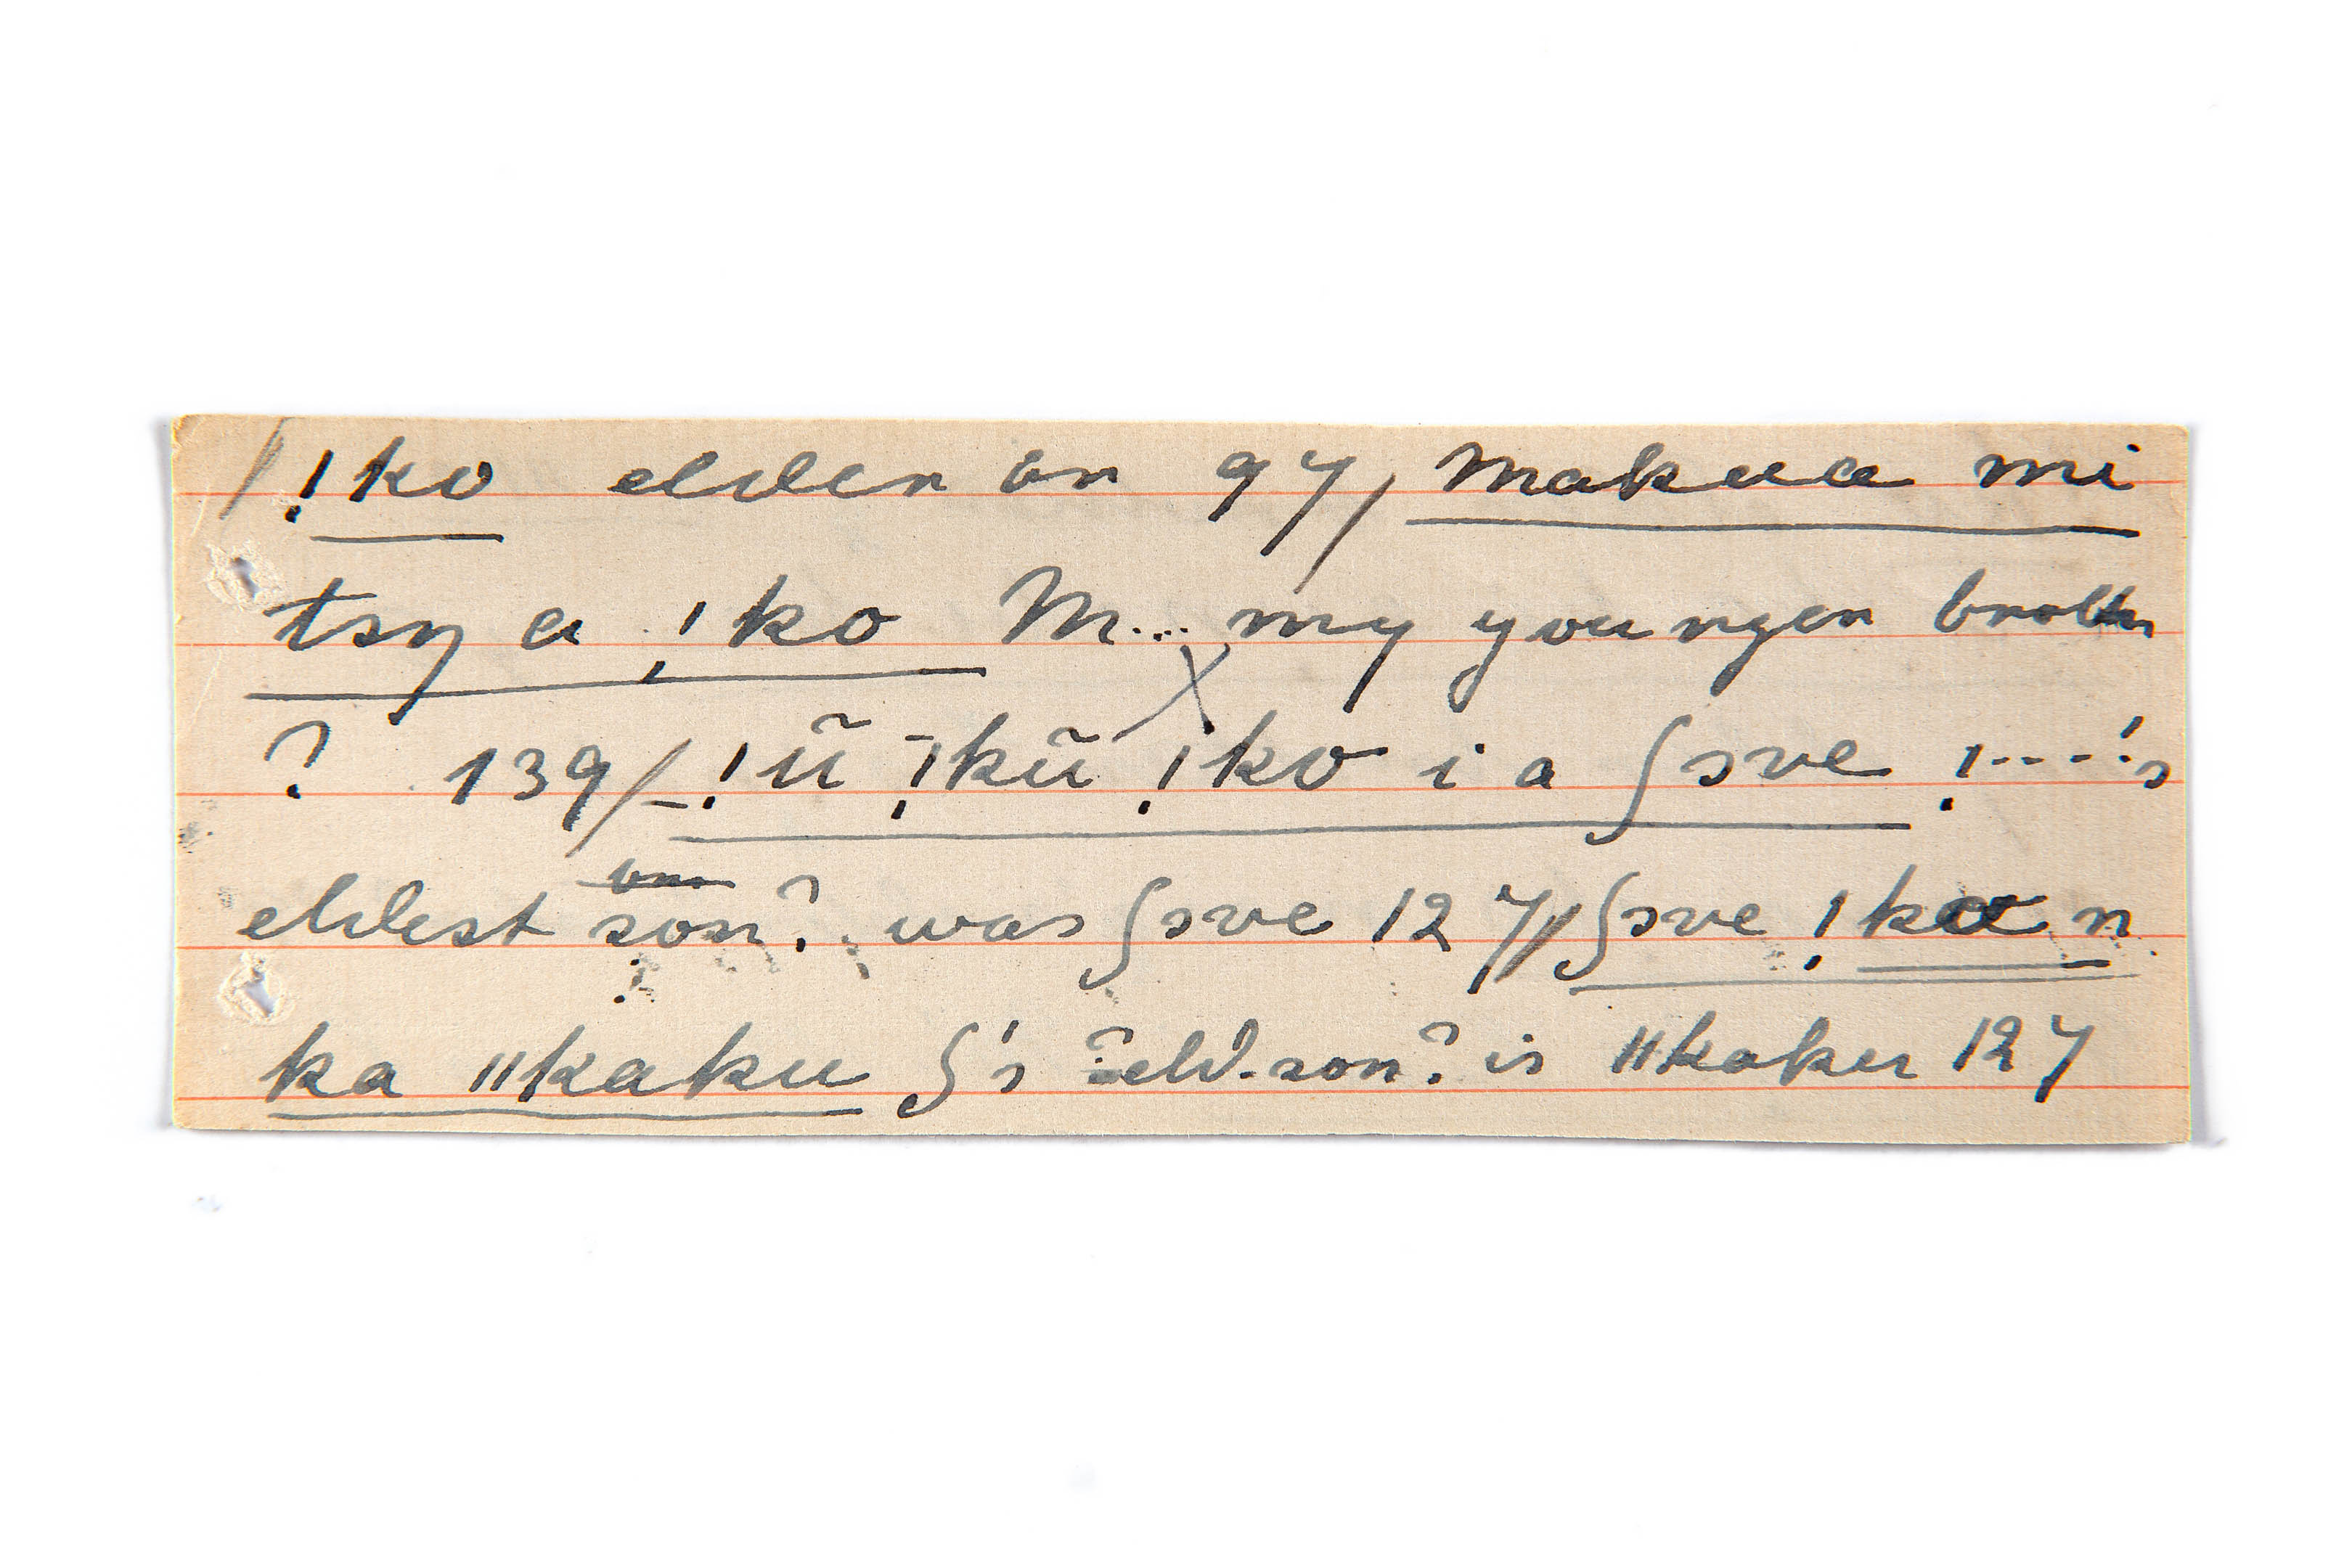 / !ko elder br 97/ Makua mi
tsy a !ko M... my younger brother
? 139/ !ũ !kũ !ko i a ʃsve !....'s
eldest son? was ʃsve 127// ʃsve !ko n
ka ǁkaku ʃ's ?eld.son? is ǁkaku 127